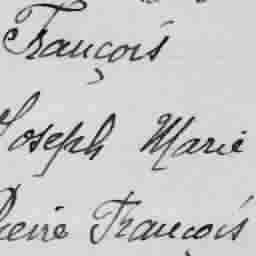 François
Joseph Marie
Pierre François